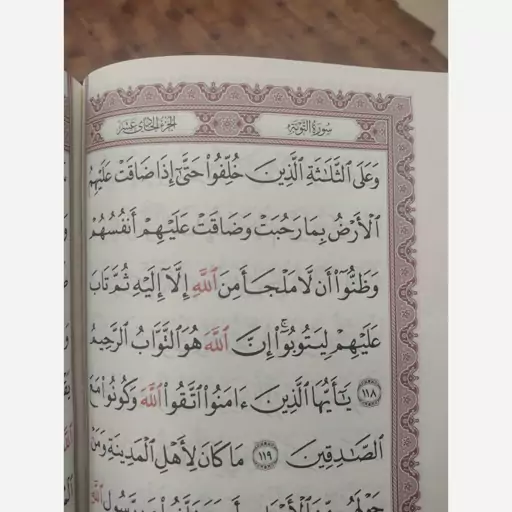 سورة التوبة
الجزء الحادي عشر
وَعَلَى ٱلثَّلَٰثَةِ ٱلَّذِينَ خُلِّفُوا۟ حَتَّىٰٓ إِذَا ضَاقَتْ عَلَيْهِمُ
ٱلْأَرْضُ بِمَا رَحُبَتْ وَضَاقَتْ عَلَيْهِمْ أَنفُسُهُمْ
وَظَنُّوٓا۟ أَن لَّا مَلْجَأَ مِنَ ٱللَّهِ إِلَّآ إِلَيْهِ ثُمَّ تَابَ
عَلَيْهِمْ لِيَتُوبُوٓا۟ ۚ إِنَّ ٱللَّهَ هُوَ ٱلتَّوَّابُ ٱلرَّحِيمُ
١١٨ يَٰٓأَيُّهَا ٱلَّذِينَ ءَامَنُوا۟ ٱتَّقُوا۟ ٱللَّهَ وَكُونُوا۟ مَعَ
ٱلصَّٰدِقِينَ ١١٩ مَا كَانَ لِأَهْلِ ٱلْمَدِينَةِ وَمَنْ
حَوْلَهُم مِّنَ ٱلْأَعْرَابِ أَن يَتَخَلَّفُوا۟ عَن رَّسُولِ ٱللَّهِ